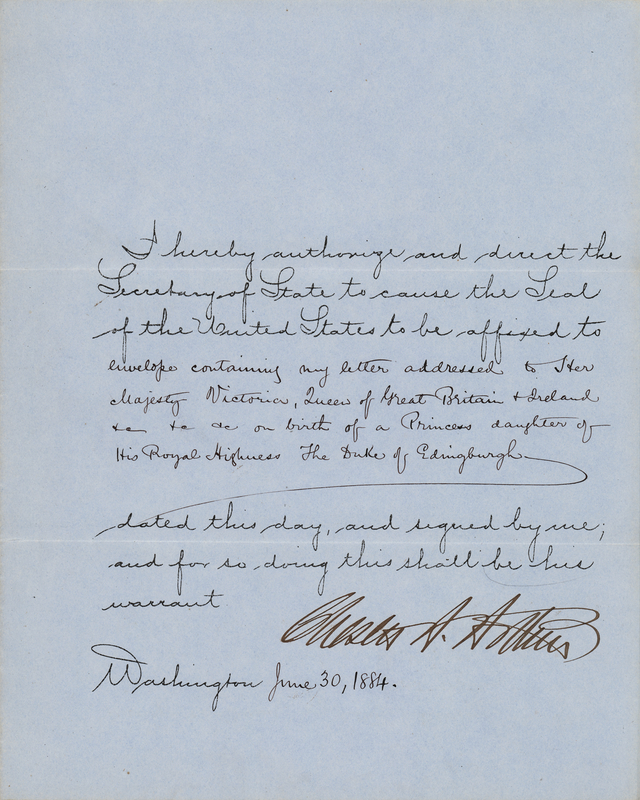 I hereby authorize and direct the
Secretary of State to cause the Seal
of the United States to be affixed to
envelope containing my letter addressed to Her
Majesty Victoria, Queen of Great Britain & Ireland
&c &c &c on birth of a Princess daughter of
His Royal Highness The Duke of Edingburgh
dated this day, and signed by me;
and for so doing this shall be his
warrant
Chester A. Arthur
Washington June 30, 1884.